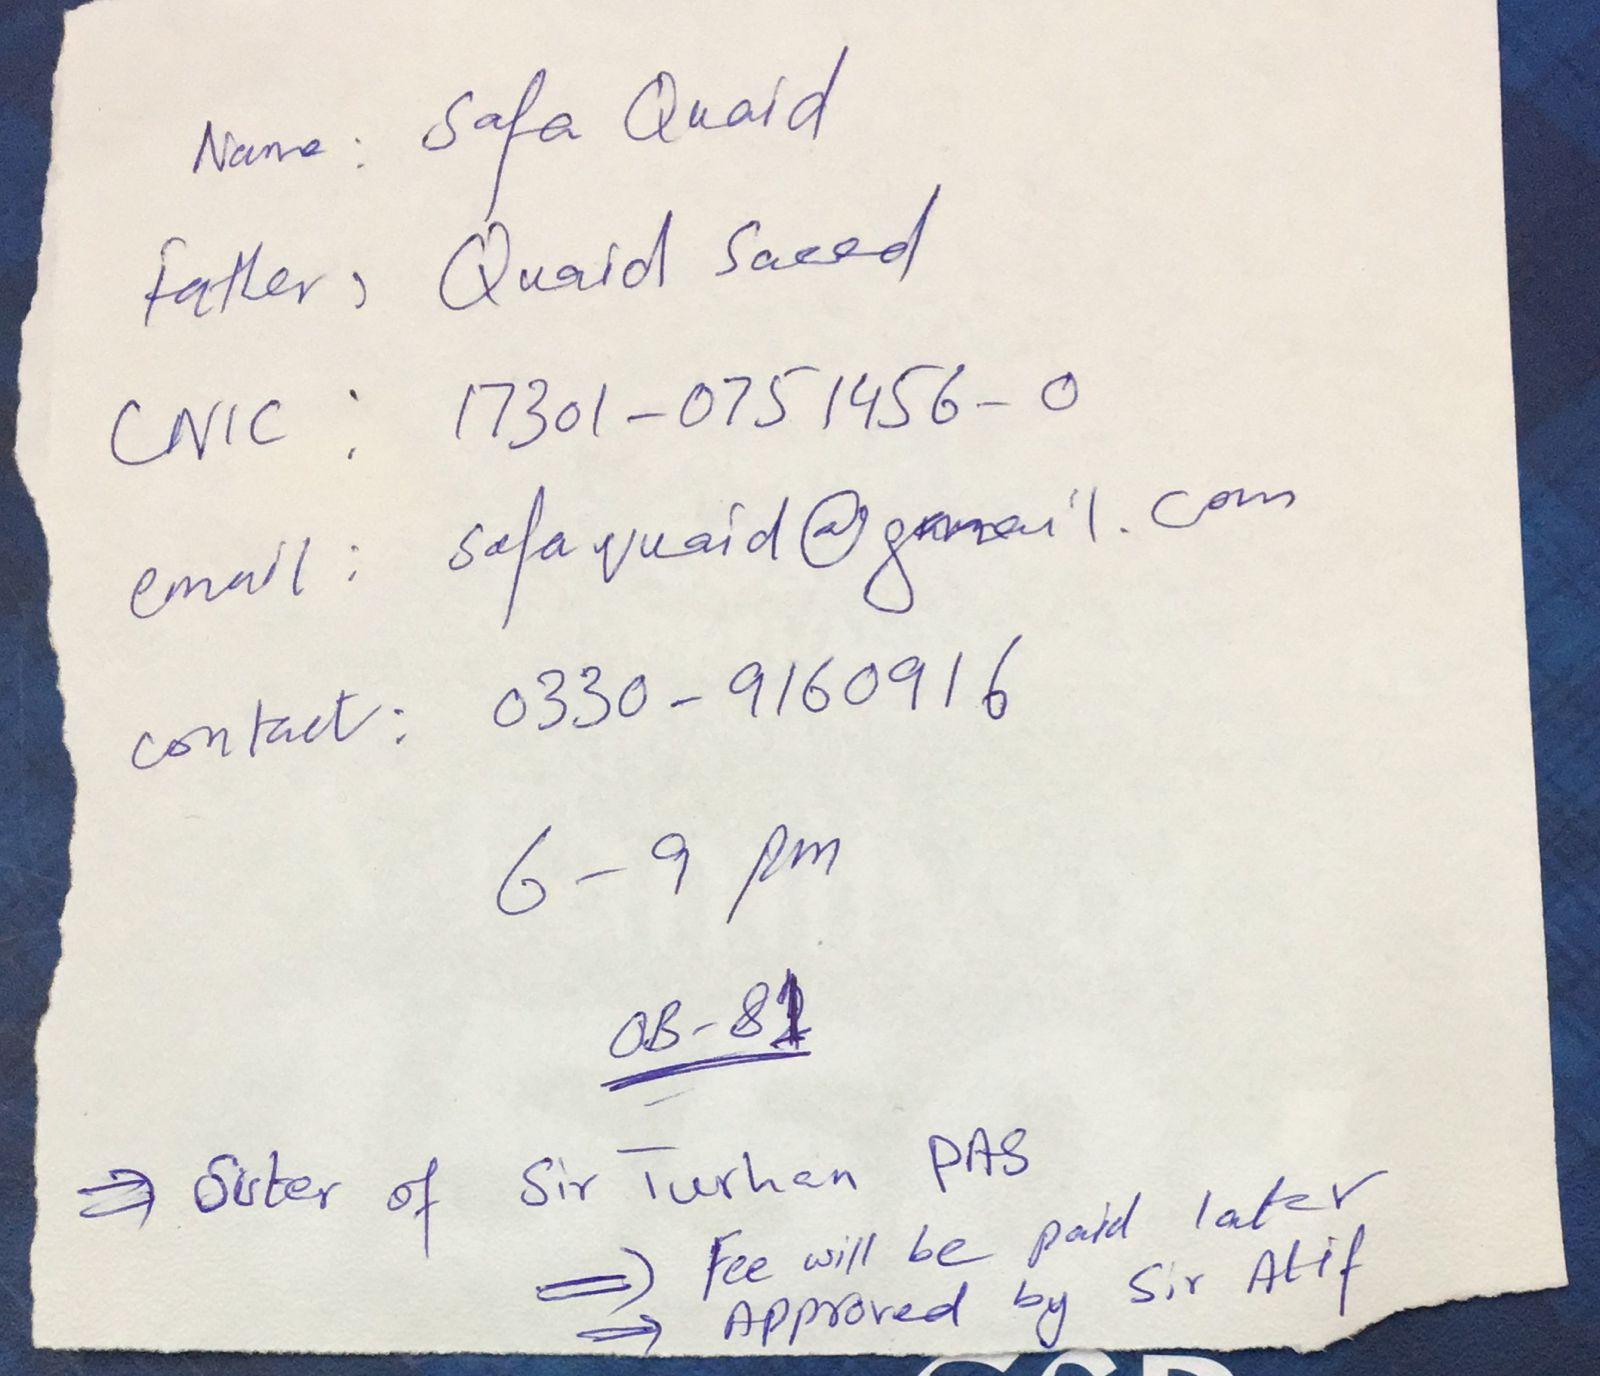 Name: Safa Quaid
Father, Quaid Saeed
CNIC: 17301-0751456-0
email: safaquaid@gmail.com
contact: 0330-9160916
6-9 pm
OB-81
⇒ Sister of Sir Turhan PAS
⇒ Fee will be paid later
⇒ Approved by Sir Atif